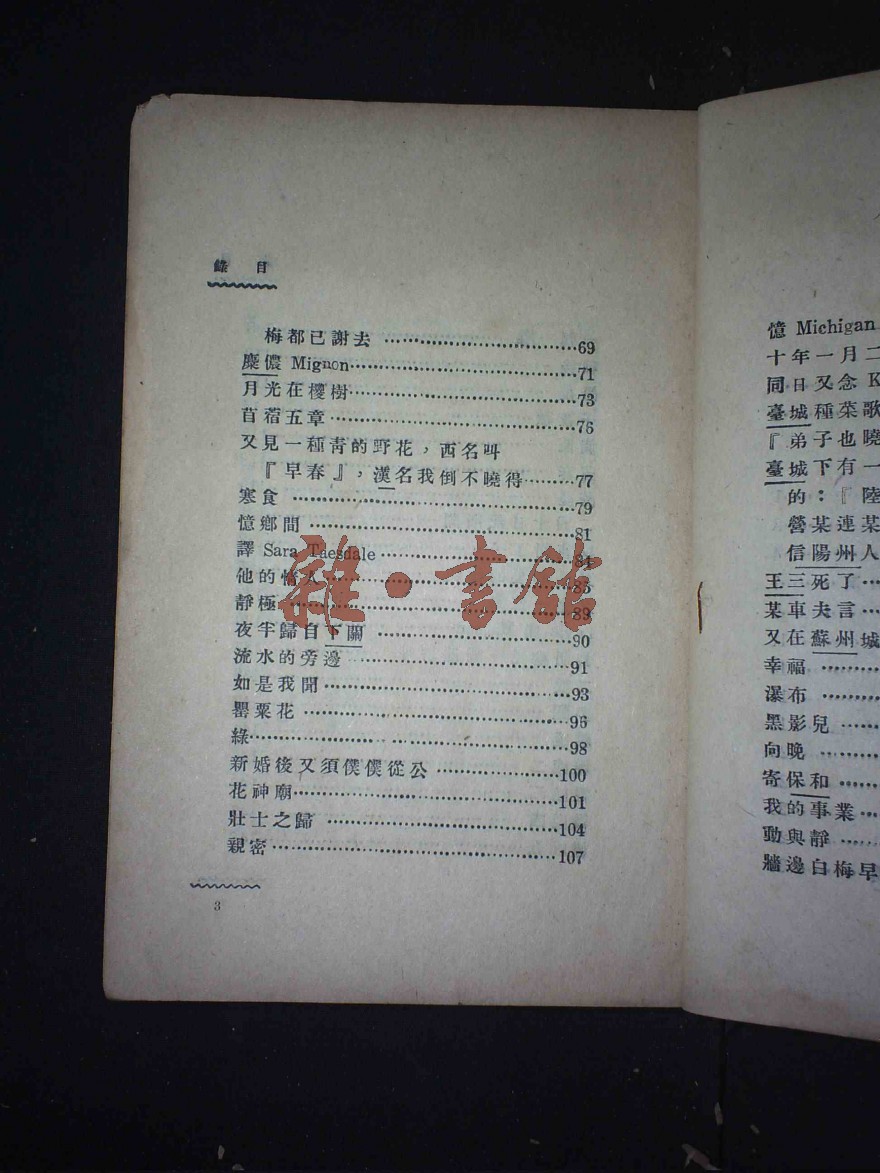 錄 目
梅都已謝去 ……69
麋儂 Mignon……71
月光在樱樹……73
苜蓿五章……76
又見一種靑的野花，西名叫
『早春』，漢名我倒不曉得……77
寒食……79
憶鄉間……81
譯 Sara Taesdale……84
他的情人……85
靜極……89
夜半歸自下關……90
流水的旁邊……91
如是我聞……93
罌粟花……96
綠……98
新婚後又須僕僕從公……100
花神廟……101
壯士之歸……104
親密……107
3
憶 Michigan
十年一月二
同日又念 K
臺城種菜歌
『弟子也曉
臺城下有一
的：『陸
營某連某
信陽州人
王三死了…
某車夫言…
又在蘇州城
幸福……
瀑布……
黑影兒……
向晚……
寄保和……
我的事業…
動與靜……
牆邊白梅早
雜·書館